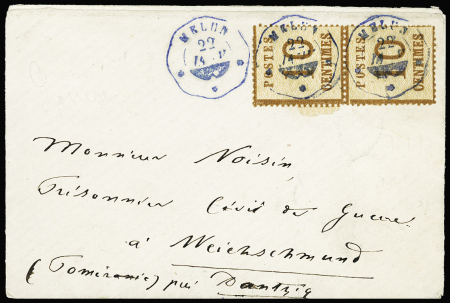 MELUN MELUN MELUN
22 22 22
POSTES 10 CENTIMES POSTES 10 CENTIMES
Monsieur Voisin,
Prisonnier Civil de Guerre
à Weichselmund
(Poméranie) près Dantzig